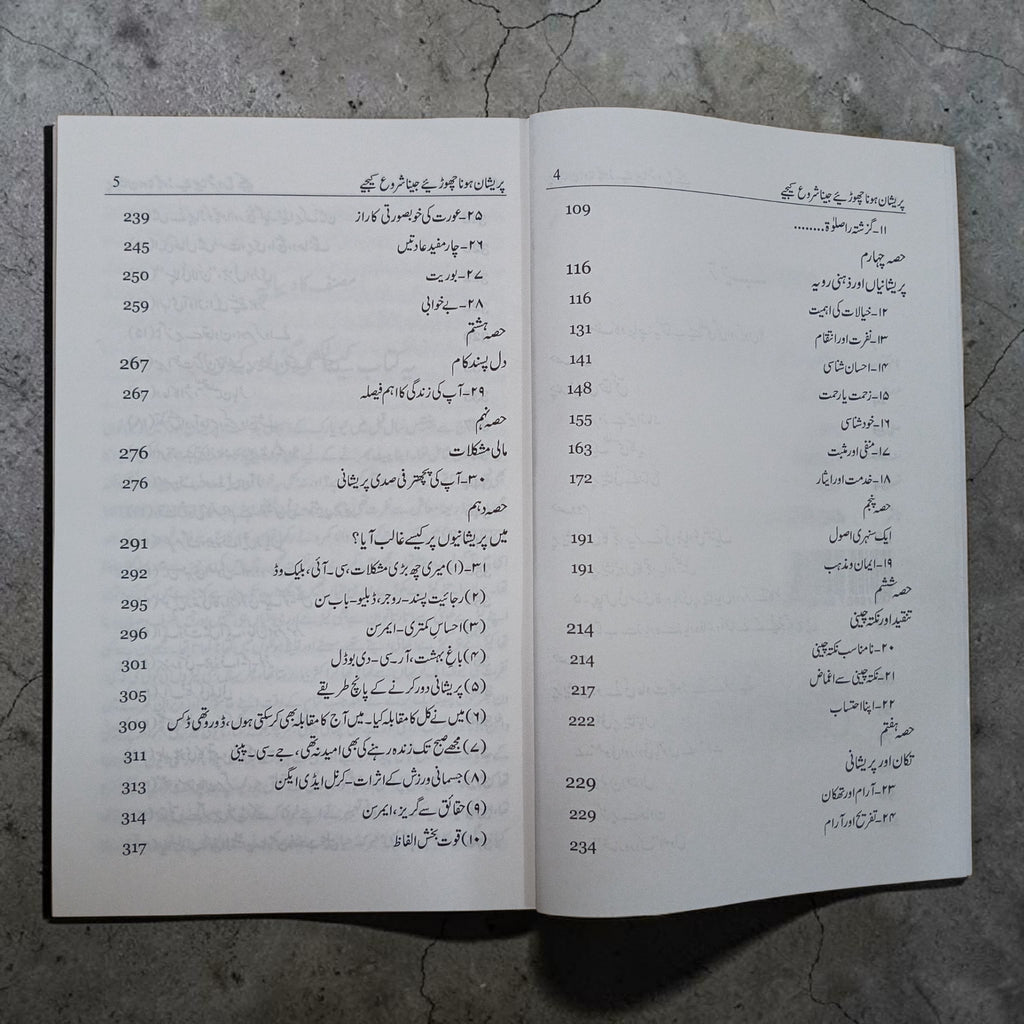 پریشان ہونا چھوڑیئے جینا شروع کیجیے 4
۱۱۔ گزشتہ را صلوٰۃ........ 109
حصہ چہارم
پریشانیاں اور ذہنی رویہ 116
۱۲۔ خیالات کی اہمیت 116
۱۳۔ نفرت اور انتقام 131
۱۴۔ احسان شناسی 141
۱۵۔ زحمت یا رحمت 148
۱۶۔ خود شناسی 155
۱۷۔ منفی اور مثبت 163
۱۸۔ خدمت اور ایثار 172
حصہ پنجم
ایک سنہری اصول 191
۱۹۔ ایمان و مذہب 191
حصہ ششم
تنقید اور نکتہ چینی 214
۲۰۔ نامناسب نکتہ چینی 214
۲۱۔ نکتہ چینی سے اغماض 217
۲۲۔ اپنا احتساب 222
حصہ ہفتم
تکان اور پریشانی 229
۲۳۔ آرام اور تھکان 229
۲۴۔ تفریح اور آرام 234
پریشان ہونا چھوڑیئے جینا شروع کیجیے 5
۲۵۔ عورت کی خوبصورتی کا راز 239
۲۶۔ چار مفید عادتیں 245
۲۷۔ بوریت 250
۲۸۔ بے خوابی 259
حصہ ہشتم
دل پسند کام 267
۲۹۔ آپ کی زندگی کا اہم فیصلہ 267
حصہ نہم
مالی مشکلات 276
۳۰۔ آپ کی پچھتر فی صدی پریشانی 276
حصہ دہم
میں پریشانیوں پر کیسے غالب آیا؟ 291
۳۱۔ (۱) میری چھ بڑی مشکلات، سی۔ آئی، بلیک وڈ 292
(۲) رجائیت پسند۔ روجر، ڈبلیو۔ باب سن 295
(۳) احساس کمتری۔ ایمرسن 296
(۴) باغ بہشت، آر۔ سی۔ دی بوڈل 301
(۵) پریشانی دور کرنے کے پانچ طریقے 305
(۶) میں نے کل کا مقابلہ کیا۔ میں آج کا مقابلہ بھی کر سکتی ہوں، ڈورتھی ڈکس 309
(۷) مجھے صبح تک زندہ رہنے کی بھی امید نہ تھی، جے۔ سی۔ پینی 311
(۸) جسمانی ورزش کے اثرات۔ کرنل ایڈی ایگن 313
(۹) حقائق سے گریز، ایمرسن 314
(۱۰) قوت بخش الفاظ 317